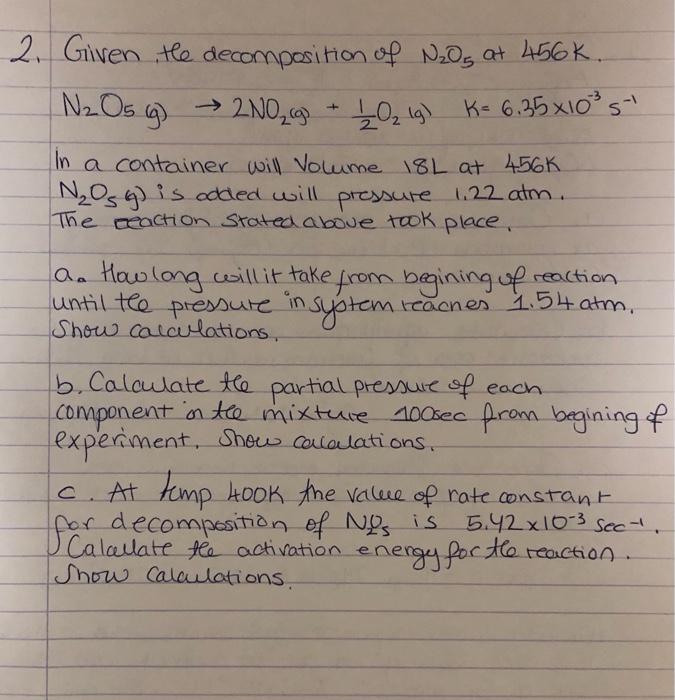 2. Given the decomposition of N₂O₅ at 456K.
N₂O₅ (g) → 2NO₂(g) + ½O₂ (g) K= 6.35x10⁻³ s⁻¹
In a container will Volume 18L at 456K
N₂O₅ (g) is added will pressure 1.22 atm.
The reaction stated above took place.
a. How long will it take from begining of reaction
until the pressure in system reaches 1.54 atm.
Show calculations.
b. Calculate the partial pressure of each
component in the mixture 100sec from begining of
experiment. Show calculations.
c. At temp 400K the value of rate constant
for decomposition of N₂O₅ is 5.42x10⁻³ sec⁻¹.
Calculate the activation energy for the reaction.
Show Calculations.